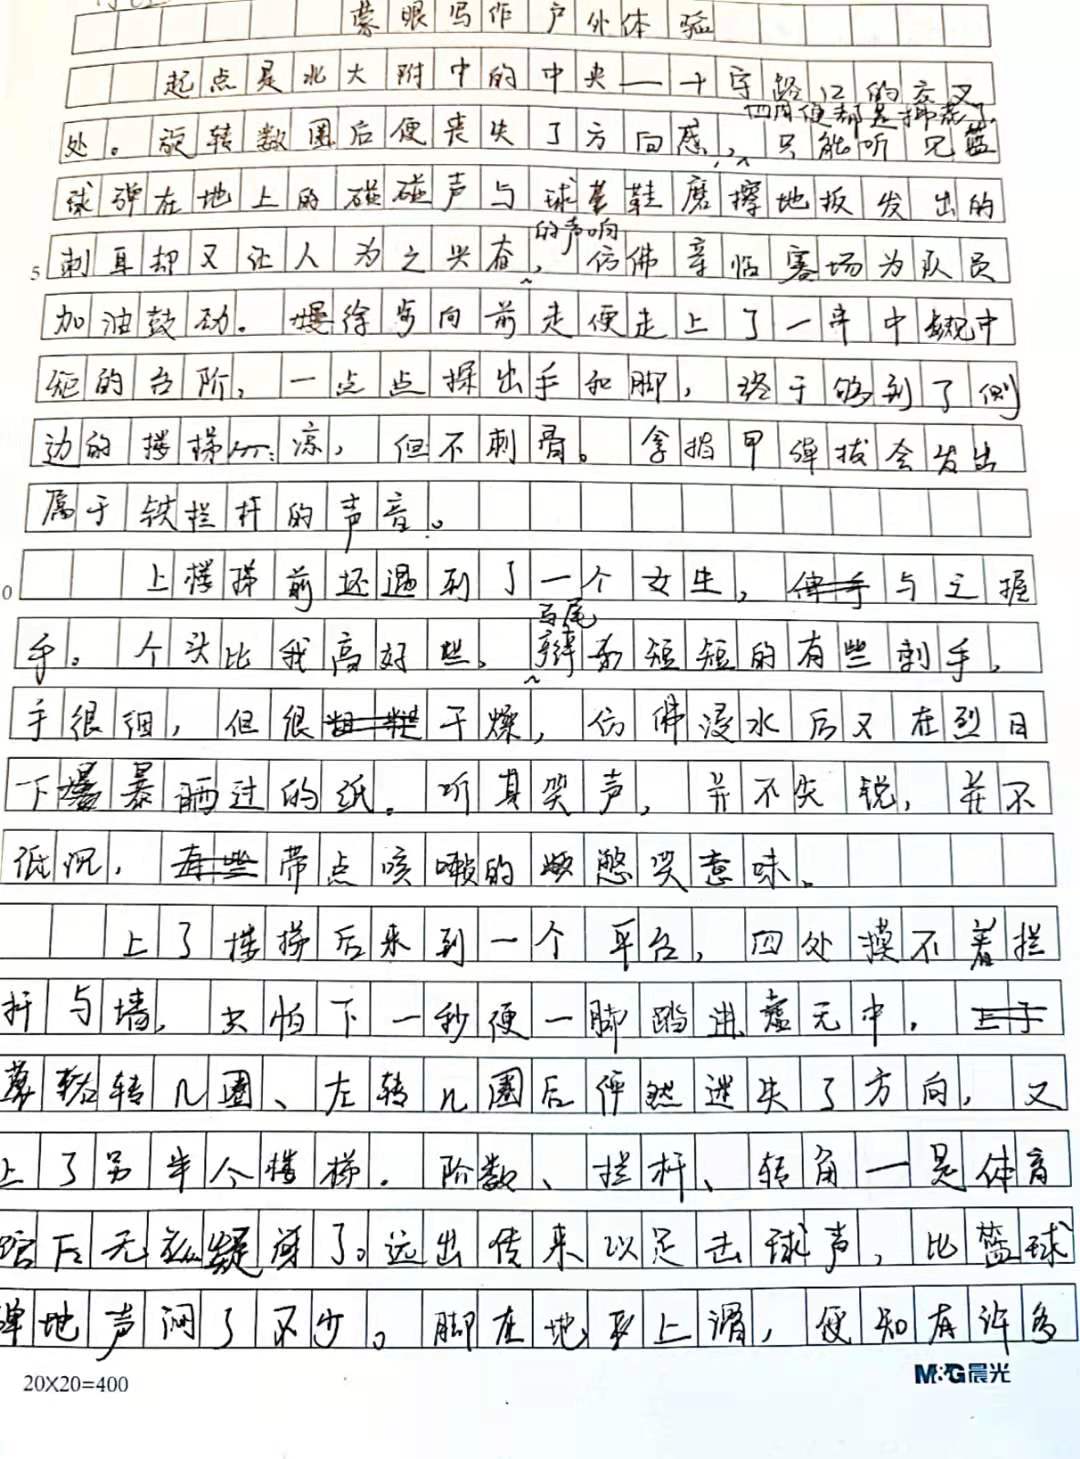 蒙眼写作户外体验
起点是北大附中的中央——十字路口的交叉
四周便都是
处。旋转数圈后便丧失了方向感，只能听见蓝
球弹在地上的碰碰声与球鞋磨擦地板发出的
的声响
5 刺耳却又让人为之兴奋，仿佛亲临赛场为队员
加油鼓劲。徐步向前走便走上了一串中规中
矩的台阶，一点点探出手和脚，终于够到了侧
边的楼梯凉，但不刺骨。拿指甲弹拔会发出
属于铁栏杆的声音。
0 上楼梯前还遇到了一个女生，与之握
马尾
手。个头比我高好些。辫短短的有些刺手，
手很细，但很干燥，仿佛浸水后又在烈日
下暴晒过的纸。听其笑声，并不尖锐，并不
低沉，带点咳嗽的憋笑意味。
上了楼梯后来到一个平台，四处摸不着拦
杆与墙，只怕下一秒便一脚踏进虚无中。
右转几圈、左转几圈后怦然迷失了方向，又
上了另半个楼梯。阶数、拦杆、转角一是体育
馆后无疑了。远出传来以足击球声，比篮球
弹地声闷了不少。脚在地上滑，便知有许多
20X20=400
M&G晨光